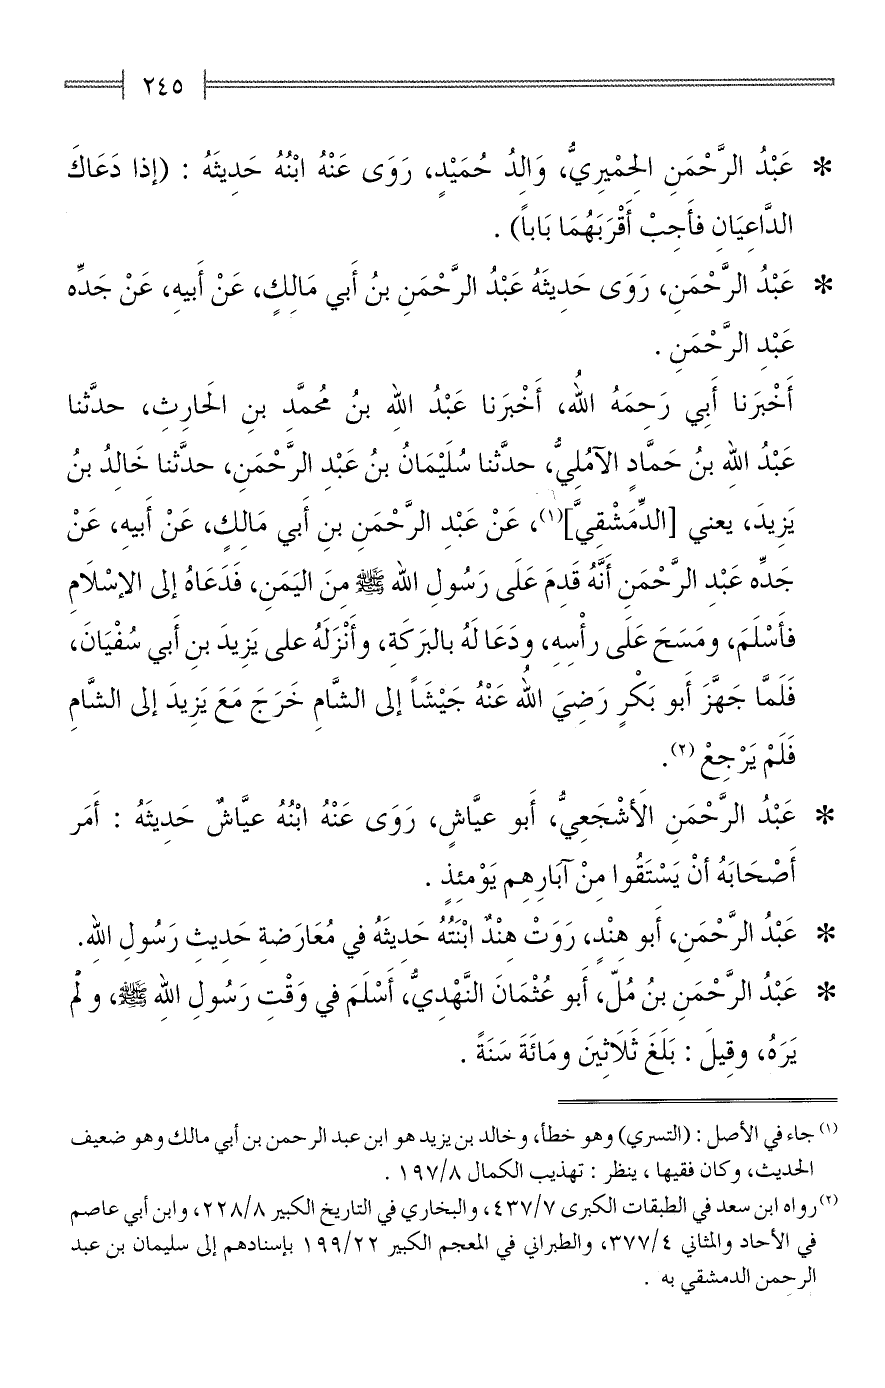 ٢٤٥
* عَبْدُ الرَّحْمَنِ الحِمْيِريُّ، وَالدُ حُمَيْدٍ، رَوَى عَنْهُ ابْنُهُ حَدِيثَهُ : (إذا دَعَاكَ
الدَّاعِيَانِ فأَجِبْ أَقْرَبَهُمَا بَاباً) .
* عَبْدُ الرَّحْمَنِ، رَوَى حَدِيثَهُ عَبْدُ الرَّحْمَنِ بنُ أَبي مَالِكٍ، عَنْ أَبيهِ، عَنْ جَدِّه
عَبْدِ الرَّحْمَنِ .
أَخْبَرَنا أَبي رَحِمَهُ اللهُ، أَخْبَرَنا عَبْدُ اللهِ بنُ مُحمَّدِ بنِ الحَارِثِ، حدَّثنا
عَبْدُ اللهِ بنُ حَمَّادٍ الآمُليُّ، حدَّثنا سُلَيْمَانُ بنُ عَبْدِ الرَّحْمَنِ، حدَّثنا خَالِدُ بنُ
يَزِيدَ، يعني [الدِّمَشْقِيَّ](١)، عَنْ عَبْدِ الرَّحْمَنِ بنِ أَبي مَالِكٍ، عَنْ أَبيهِ، عَنْ
جَدِّه عَبْدِ الرَّحْمَنِ أنَّهُ قَدِمَ عَلَى رَسُولِ اللهِ ﷺ مِنَ اليَمَنِ، فَدَعَاهُ إلى الإسْلَامِ
فأَسْلَمَ، ومَسَحَ عَلَى رأْسِهِ، ودَعَا لَهُ بالبَرَكَةِ، وأَنْزَلَهُ على يَزِيدَ بنِ أَبي سُفْيَانَ،
فَلَمَّا جَهَّزَ أَبو بَكْرٍ رَضِيَ اللهُ عَنْهُ جَيْشَاً إلى الشَّامِ خَرَجَ مَعَ يَزِيدَ إلى الشَّامِ
فَلَمْ يَرْجِعْ (٢).
* عَبْدُ الرَّحْمَنِ الأَشْجَعِيُّ، أَبو عيَّاشٍ، رَوَى عَنْهُ ابْنُهُ عيَّاشٌ حَدِيثَهُ : أَمَر
أَصْحَابَهُ أنْ يَسْتَقُوا مِنْ آبَارِهِم يَوْمئِذٍ .
* عَبْدُ الرَّحْمَنِ، أَبو هِنْدٍ، رَوَتْ هِنْدٌ ابْنَتُهُ حَدِيثَهُ في مُعَارَضةِ حَدِيثِ رَسُولِ اللهِ.
* عَبْدُ الرَّحْمَنِ بنُ مُلّ، أَبو عُثْمَانَ النَّهْدِيُّ، أَسْلَمَ في وَقْتِ رَسُولِ اللهِ ﷺ، ولَمْ
يَرَهُ، وقِيلَ : بَلَغَ ثَلَاثِينَ ومَائَةَ سَنَةً .
(١) جاء في الأصل : (التسري) وهو خطأ، وخالد بن يزيد هو ابن عبد الرحمن بن أبي مالك وهو ضعيف
الحديث، وكان فقيها ، ينظر : تهذيب الكمال ١٩٧/٨ .
(٢) رواه ابن سعد في الطبقات الكبرى ٤٣٧/٧، والبخاري في التاريخ الكبير ٢٢٨/٨، وابن أبي عاصم
في الآحاد والمثاني ٣٧٧/٤، والطبراني في المعجم الكبير ١٩٩/٢٢ بإسنادهم إلى سليمان بن عبد
الرحمن الدمشقي به .